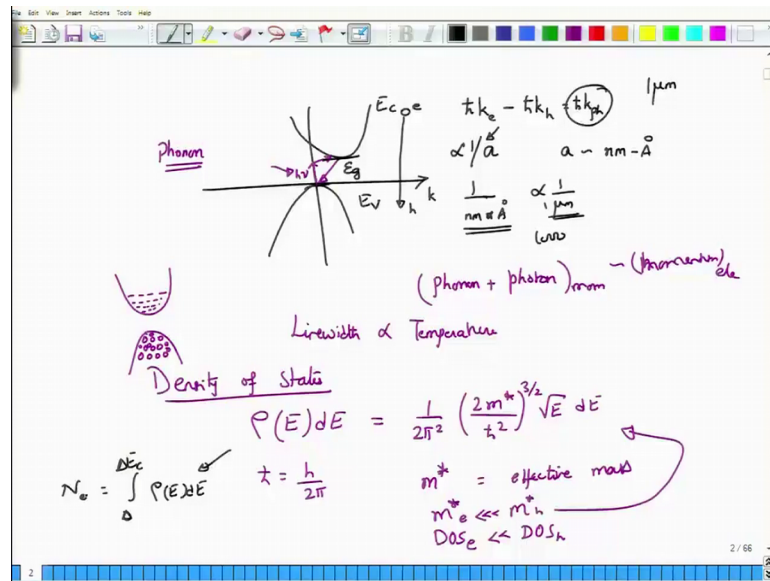 File Edit View Insert Actions Tools Help
B I
Ec e
ħk_e - ħk_h = ħk_ph
1μm
phonon
hν
Eg
∝ 1/a
a ~ nm - Å
Ev
h
k
1/nm or Å
∝ 1/1μm
(phonon + photon)mom ~ (momentum)ele
Linewidth ∝ Temperature
Density of States
ρ(E)dE = 1/2π² (2m*/ħ²)^3/2 √E dE
N_e = ∫ ρ(E)dE
ħ = h/2π
m* = effective mass
m*e <<< m*h
DOSe << DOSh
2 / 66
2